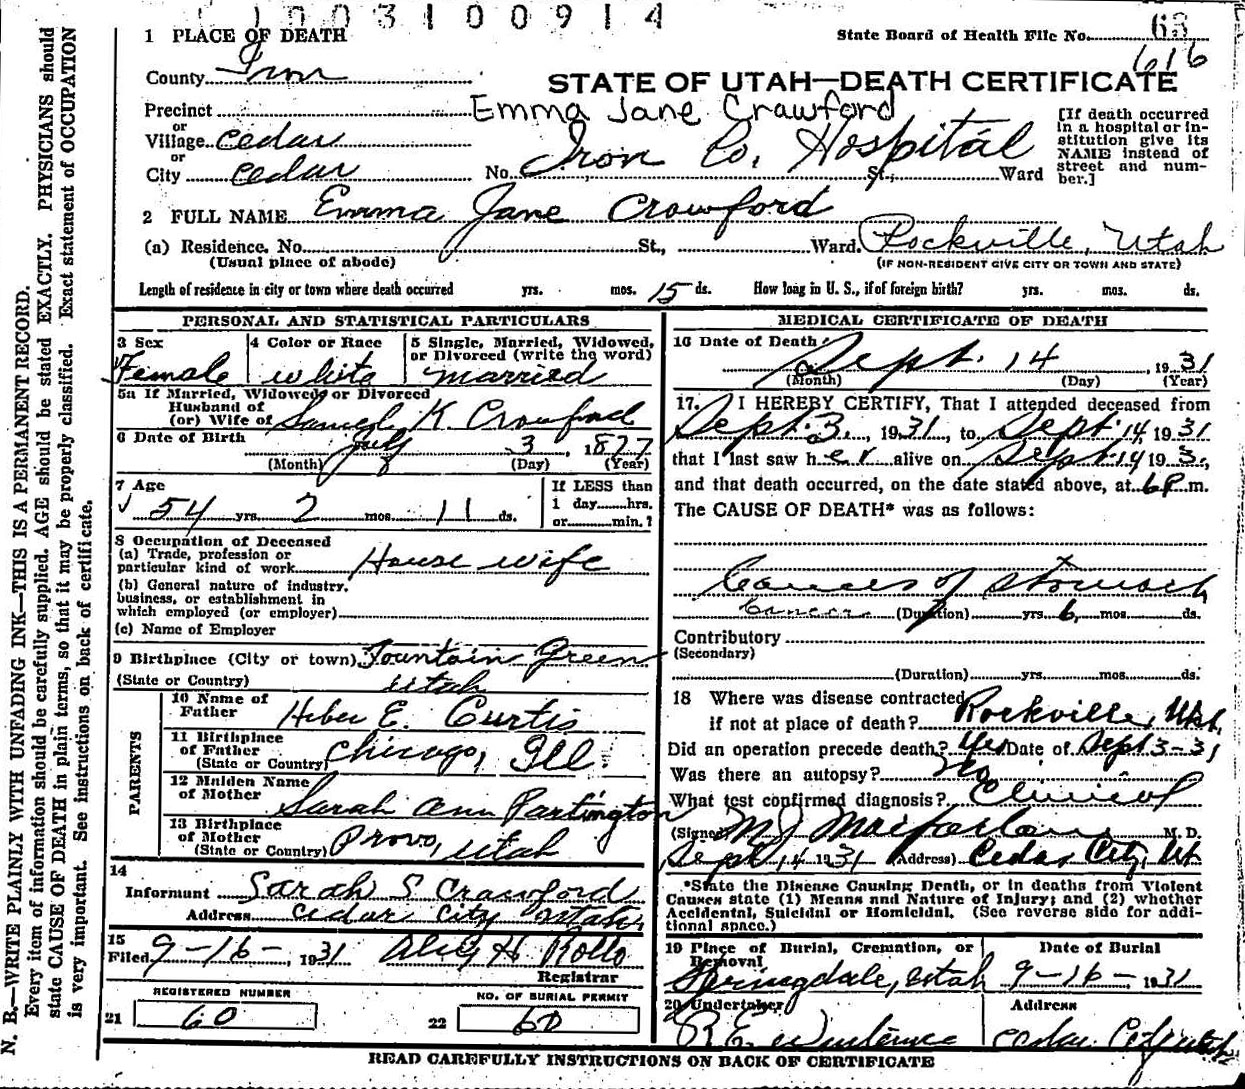 1003100914
1 PLACE OF DEATH
State Board of Health File No. 63
616
County Iron
STATE OF UTAH—DEATH CERTIFICATE
Precinct
Emma Jane Crawford
or
Village cedar
or
City cedar No. Iron Co. Hospital St., Ward
[If death occurred in a hospital or in-
stitution give its
NAME instead of
street and num-
ber.]
2 FULL NAME Emma Jane Crawford
(a) Residence. No. St., Ward. Rockville, Utah
(Usual place of abode) (IF NON-RESIDENT GIVE CITY OR TOWN AND STATE)
Length of residence in city or town where death occurred yrs. mos. 15 ds. How long in U. S., if of foreign birth? yrs. mos. ds.
PERSONAL AND STATISTICAL PARTICULARS
3 Sex 4 Color or Race 5 Single, Married, Widowed,
or Divorced (write the word)
Female white married
5a If Married, Widowed, or Divorced
Husband of
(or) Wife of Samuel K. Crawford
6 Date of Birth July 3, 1877
(Month) (Day) (Year)
7 Age
54 yrs. 2 mos. 11 ds.
If LESS than
1 day hrs.
or min.?
8 Occupation of Deceased
(a) Trade, profession or
particular kind of work House wife
(b) General nature of industry,
business, or establishment in
which employed (or employer)
(c) Name of Employer
9 Birthplace (City or town) Fountain Green
(State or Country) Utah
PARENTS
10 Name of
Father Heber E. Curtis
11 Birthplace
of Father
(State or Country) Chicago, Ill
12 Maiden Name
of Mother Sarah Ann Partington
13 Birthplace
of Mother
(State or Country) Provo, Utah
14
Informant Sarah S Crawford
Address Cedar City Utah
15
Filed 9-16-, 1931 H Rollo
Registrar
REGISTERED NUMBER NO. OF BURIAL PERMIT
21 60 22 60
MEDICAL CERTIFICATE OF DEATH
16 Date of Death Sept. 14, 1931
(Month) (Day) (Year)
17. I HEREBY CERTIFY, That I attended deceased from
Sept. 3, 1931, to Sept. 14, 1931
that I last saw her alive on Sept. 14 193
and that death occurred, on the date stated above, at 6 P. m.
The CAUSE OF DEATH* was as follows:
Cancer of Stomach
Cancer (Duration) yrs. 6 mos. ds.
Contributory
(Secondary)
(Duration) yrs. mos. ds.
18 Where was disease contracted
if not at place of death? Rockville, Utah,
Did an operation precede death? Yes Date of Sept 3-31
Was there an autopsy? No
What test confirmed diagnosis? Clinical
(Signed) M J Macfarlane M. D.
Sept 14 1931 (Address) Cedar City, Ut
*State the Disease Causing Death, or in deaths from Violent
Causes state (1) Means and Nature of Injury; and (2) whether
Accidental, Suicidal or Homicidal. (See reverse side for addi-
tional space.)
19 Place of Burial, Cremation, or
Removal Date of Burial
Springdale, Utah 9-16-, 1931
20 Undertaker Address
R.E. Cedar City Utah
READ CAREFULLY INSTRUCTIONS ON BACK OF CERTIFICATE
N. B.—WRITE PLAINLY WITH UNFADING INK—THIS IS A PERMANENT RECORD.
Every item of information should be carefully supplied. AGE should be stated EXACTLY. PHYSICIANS should
state CAUSE OF DEATH in plain terms, so that it may be properly classified. Exact statement of OCCUPATION
is very important. See instructions on back of certificate.